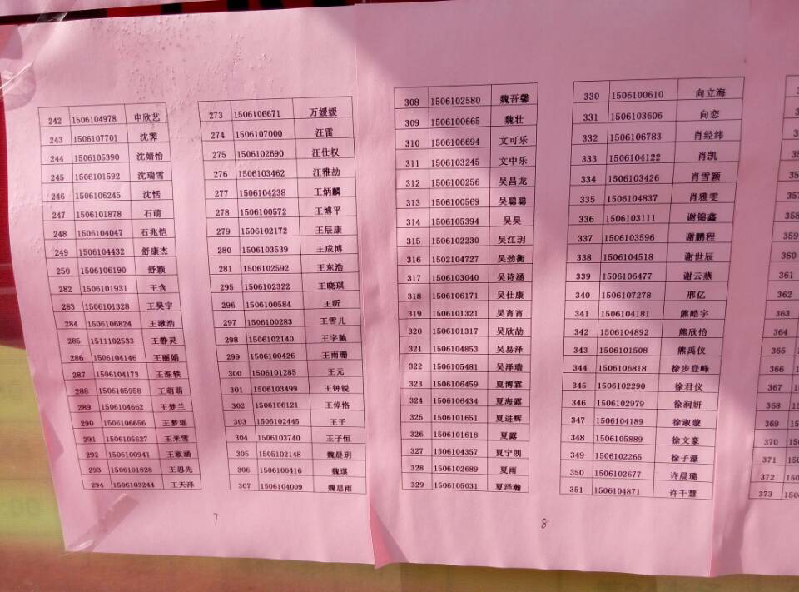 242 1506104978 申欣艺
243 1506107701 沈霁
244 1506105390 沈靖怡
245 1506101592 沈瑞雪
246 1506106245 沈恬
247 1506101878 石萌
248 1506104047 石兆恺
249 1506104432 舒康杰
250 1506106190 舒颖
282 1506101931
283 1506101328 王昊宇
284 1506106824
285 1511102533 王静灵
286 1506104148 王丽娟
287 1506104173
288
289 1506104662 王梦兰
290 1506106656
291 1506105027 王米雪
292 1506100941
293 1506101028 王思先
294 1506103244 王天泽
7
273 1506106671 万媛媛
274 1506107000 汪雷
275 1506102690 汪仕权
276 1506103462 汪雅劼
277 1506104238 王炳麟
278 1506100572 王博平
279 1506102172 王辰康
280 1506103539 王成博
281 1506102592 王东浩
295 1506102322 王晓琪
296 1506100684 王昕
297 1506100283 王雪儿
298 1506102140
299 1506100426 王雨珊
300 1506101265 王元
301 1506103499
302 1506106121
303 1506102445 王子
304 1506103740 王子恒
305 1506102148 魏晨玥
306 1506100416
307 1506104009 魏思雨
308 1506102580 魏吾馨
309 1506100665 魏壮
310 1506106694 文可乐
311 1506103245 文中乐
312 1506100256 吴昌龙
313 1506100569 吴馨馨
314 1506105394 吴昊
315 1506102330 吴江玥
316 1502104727
317 1506103040 吴诗涵
318 1506106171 吴仕康
319 1506101321 吴宵宵
320 1506101317 吴欣劼
321 1506104853 吴易泽
322 1506105481 吴泽瑞
323 1506106459 夏博霖
324 1506106434 夏海露
325 1506101651 夏进辉
326 1506101618 夏露
327 1506104357 夏宁玥
328 1506102689 夏雨
329 1506105031 夏泽瀚
8
330 1506100610 向立海
331 1506103606 向恋
332 1506106783 肖经纬
333 1506104122 肖凯
334 1506103426 肖雪颖
335 1506104837 肖雅雯
336 1506103111 谢锦鑫
337 1506103596 谢鹏程
338 1506104518 谢世辰
339 1506106477 谢云燕
340 1506107278 邢亿
341 1506104181 熊皓宇
342 1506104892 熊欣怡
343 1506101508 熊禹仪
344 1506106818 徐步登峰
345 1506102290 徐君仪
346 1506102979 徐润妍
347 1506104189 徐淑璇
348 1506105889 徐文豪
349 1506102265 徐子潭
350 1506102677 许晨璐
351 1506104871 许千慧
359
361
362
363
364
367
368
369
370
371
372
373